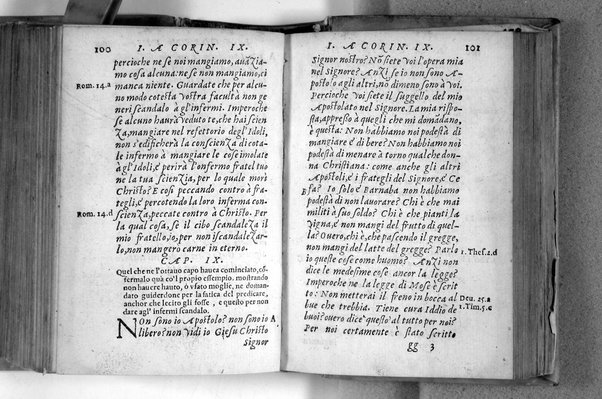 100 I. A CORIN. IX.
percioche ne se noi mangiamo, auāzia-
mo cosa alcuna: ne se non mangiamo, ci
Rom. 14.a
manca niente. Guardate che per alcu-
no modo cotesta vostra facultà non ve
neri scandalo à gl'infermi. Imperoche
se alcuno haurà veduto te, che hai scien
za, mangiare nel refettorio degl'Idoli,
non s'edificherà la conscienza di cota-
le infermo à mangiare le cose imolate
à gl'Idoli, e perirà l'infermo fratel tuo
ne la tua scienzia, per lo quale morì
Christo? E così peccando contro à fra-
tegli, e percotendo la loro inferma con-
Rom. 14.d
scienza, peccate contro à Christo. Per
la qual cosa, se il cibo scandaleza il
mio fratello, io, per non iscandalezar-
lo, non mangerò carne in eterno.
CAP. IX.
Quel che ne l'ottauo capo haueua cominciato, cō-
fermalo quà co'l proprio essempio, mostrando
non hauere hauto, ò vsato moglie, ne doman-
dato guiderdone per la fatica del predicare,
anchor che lecito gli fosse, e questo per non
dare agl'infermi scandalo.
Non sono io Apostolo? non sono io A
libero? non vidi io Giesù Christo
Signor
I. A CORIN. IX. 101
Signor nostro? Nō siete voi l'opera mia
nel Signore? Anzi se io non sono A-
postolo agli altri, nō dimeno sono à voi.
Percioche voi siete il suggello del mio
Apostolato nel Signore. La mia rispo-
sta, appresso à quegli che mi domādano,
è questa: Non habbiamo noi podestà di
mangiare e di bere? Nō habbiamo noi
podestà di menare à torno qualche don-
na Christiana: come anche gli altri
Apostoli, e i frategli del Signore, e Ce
B
fa? Io solo e Barnaba non habbiamo
podestà di non lauorare? Chi è che mai
militi à suo soldo? Chi è che pianti la
vigna, e non mangi del frutto di quel-
la? Ouero, chi è, che pascendo il gregge,
non mangi del latte del gregge? Parlo
1. Thes. 2.d
io queste cose come huomo? Anzi non
dice le medesime cose ancor la legge?
Imperoche ne la legge di Mosè è scrit-
to: Non metterai il freno in bocca al
Deu. 25.a
bue che trebbia. Tiene cura Iddio de
1. Tim. 5.c
buoi? ouero dice questo al tutto per noi?
Per noi certamente è stato scritto
gg 3